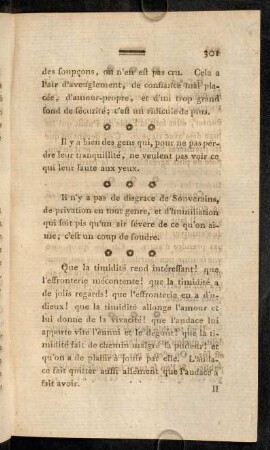 301
des soupçons, on n'en est pas cru. Cela a
l'air d'aveuglement, de confiance mal pla-
cée, d'amour-propre, et d'un trop grand
fond de sécurité; c'est un ridicule de plus.
Il y a bien des gens qui, pour ne pas per-
dre leur tranquillité, ne veulent pas voir ce
qui leur saute aux yeux.
Il n'y a pas de disgrace de Souverains,
de privation en tout genre, et d'humiliation
qui soit pis qu'un air sévere de ce qu'on ai-
me; c'est un coup de foudre.
Que la timidité rend intéressant! que
l'effronterie mécontente! que la timidité a
de jolis regards! que l'effronterie en a d'o-
dieux! que la timidité allonge l'amour et
lui donne de la vivacité! que l'audace lui
apporte vîte l'ennui et le dégoût! que la ti-
midité fait de chemin malgré la pudeur! et
qu'on a de plaisir à jouir par elle. L'auda-
ce fait quitter aussi aisément que l'audace a
fait avoir.
II